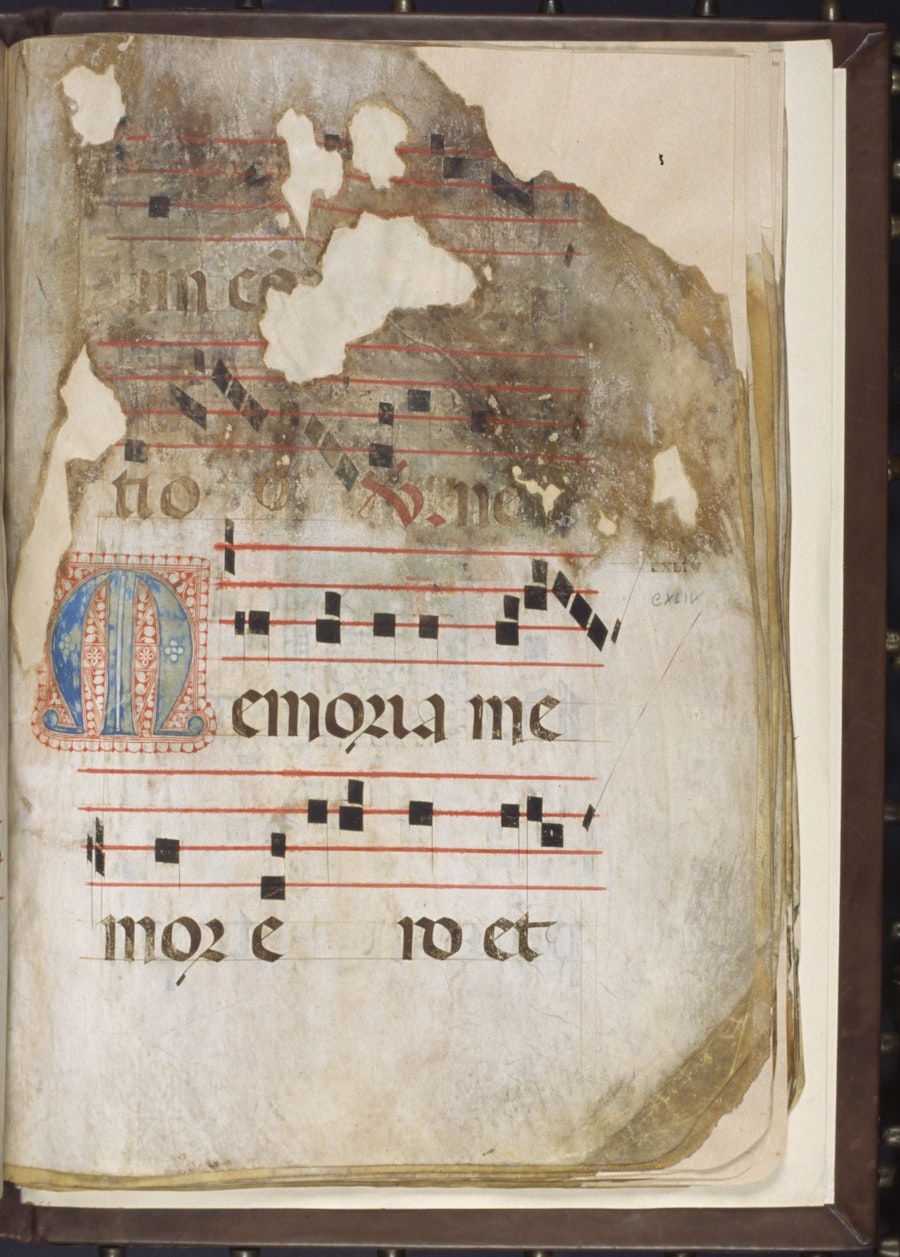 tio
℣. ne
exliv
exliv
Memoria me
mor e ro et